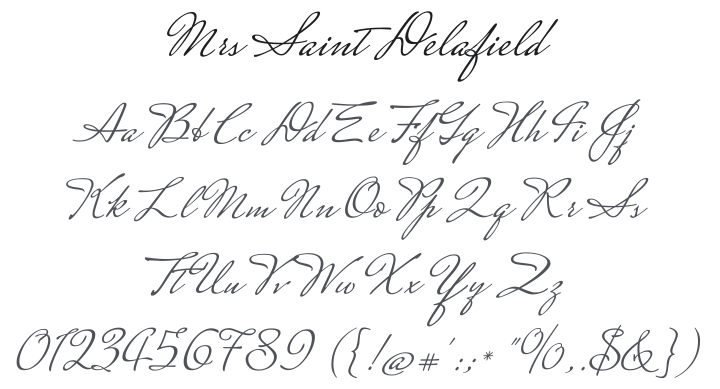 Mrs Saint Delafield
Aa Bb Cc Dd Ee Ff Gg Hh Ii Jj
Kk Ll Mm Nn Oo Pp Qq Rr Ss
Tt Uu Vv Ww Xx Yy Zz
0123456789 ({!@#':;*"%,.$&})